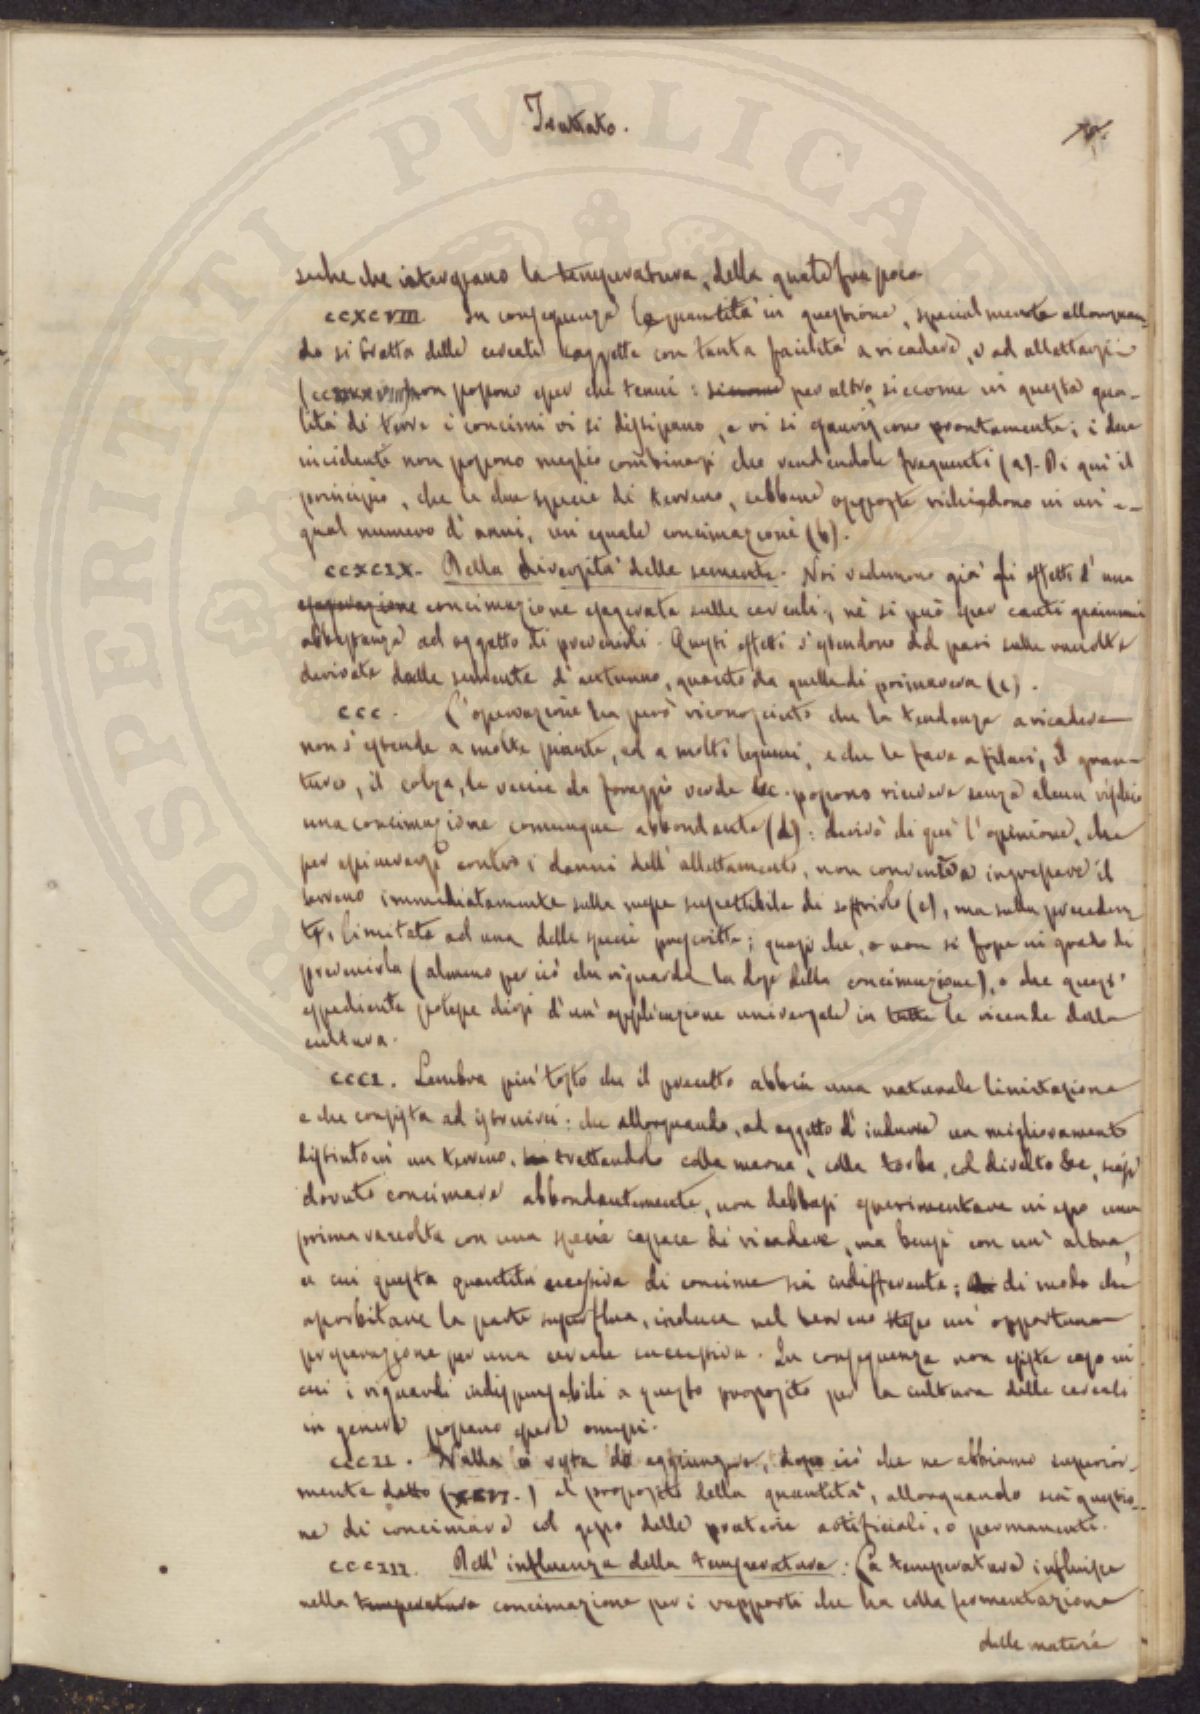 Trattato.
suche che intergiano la temperatura, della quale fra poco
CCXCVIII In conseguenza la quantità in questione, specialmente allorquan-
do si tratta delle cereali soggette con tanta facilità a ricadere, o ad allettarsi
non possono esser che tenui: per altro siccome in questa qua-
lità di terre i concimi vi si dissipano, e vi si esauriscono prontamente; i due
incidenti non possono meglio combinarsi che rendendole frequenti (a). Di qui il
principio, che le due specie di terreno, sebbene opposte richiedono in un e-
gual numero d'anni, un eguale concimazione (b).
CCXCIX. Della diversità delle semente. Noi vedemmo già gli effetti d'una
esagerazione concimazione esagerata sulle cereali; nè si può esser cauti giammai
abbastanza ad oggetto di prevenirli. Questi effetti s'estendono del pari sulle raccolte
derivate dalle semente d'autunno, quanto da quelle di primavera (c).
CCC. L'operazione ha però riconosciuto che la tendenza a ricadere
non s'estende a molte piante, ed a molti legumi, e che le fave a filari, il gran-
turco, il colza, le veccie da foraggio verde &c. possono ricevere senza alcun
una concimazione comunque abbondante (d): derivò di qui l'opinione, che
per contro i danni dell'allettamento, non converrà ingrassare il
terreno immediatamente sulla messe suscettibile di soffrirlo (e), ma sulla preceden
te, limitata ad una delle specie prescritte; quasi che, o non si fosse in grado di
prevenirla (almeno per ciò che riguarda la dose della concimazione), o che quest'
espediente potesse dirsi d'un'applicazione universale in tutte le vicende della
cultura.
CCCI. Sembra piu' tosto che il precetto abbia una naturale limitazione
e che consista ad istruirci: che allorquando, ad oggetto d'indurre un miglioramento
distinto in un terreno, trattandolo colla marna, colla torba, col divelto &c, siasi
dovuto concimare abbondantemente, non debbasi esperimentare in esso una
prima raccolta con una specie capace di ricadere, ma bensì con un'altra,
a cui questa quantità eccessiva di concime sia indifferente; di modo che
assorbitane la parte superflua, induca nel terreno stesso un'opportuna
preparazione per una cereale successiva. In conseguenza non esiste caso in
cui i riguardi indispensabili a questo proposito per la cultura delle cereali
in genere possano essere omessi.
CCCII. Nulla ci resta da aggiungere, dopo ciò che ne abbiamo superior-
mente detto (XXVI.) al proposito della quantità, allorquando sia questio-
ne di concimare col gesso delle praterie artificiali, o permanenti.
CCCIII. Dell'influenza della temperatura. La temperatura influisce
nella temperatura concimazione per i rapporti che ha colla fermentazione
delle materie